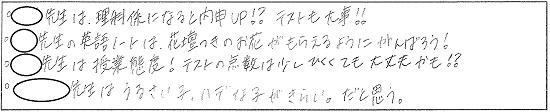 先生は、理科係になると内申UP!? テストも大事!!
先生の単語ノートは、花壇つきのお花がもらえるようにがんばろう!
先生は授業態度!テストの点数は少しひくくても大丈夫かも!?
先生はうるさい子、ハデな子がきらい。だと思う。